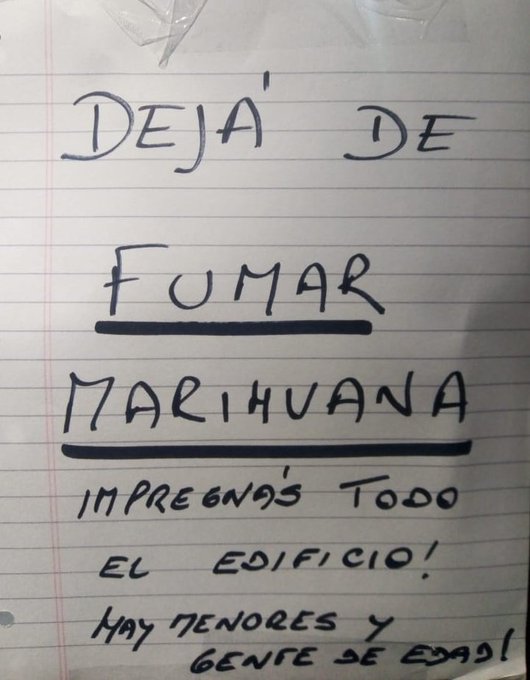 DEJÁ DE
FUMAR
MARIHUANA
IMPREGNÁS TODO
EL EDIFICIO!
HAY MENORES Y
GENTE DE EDAD!